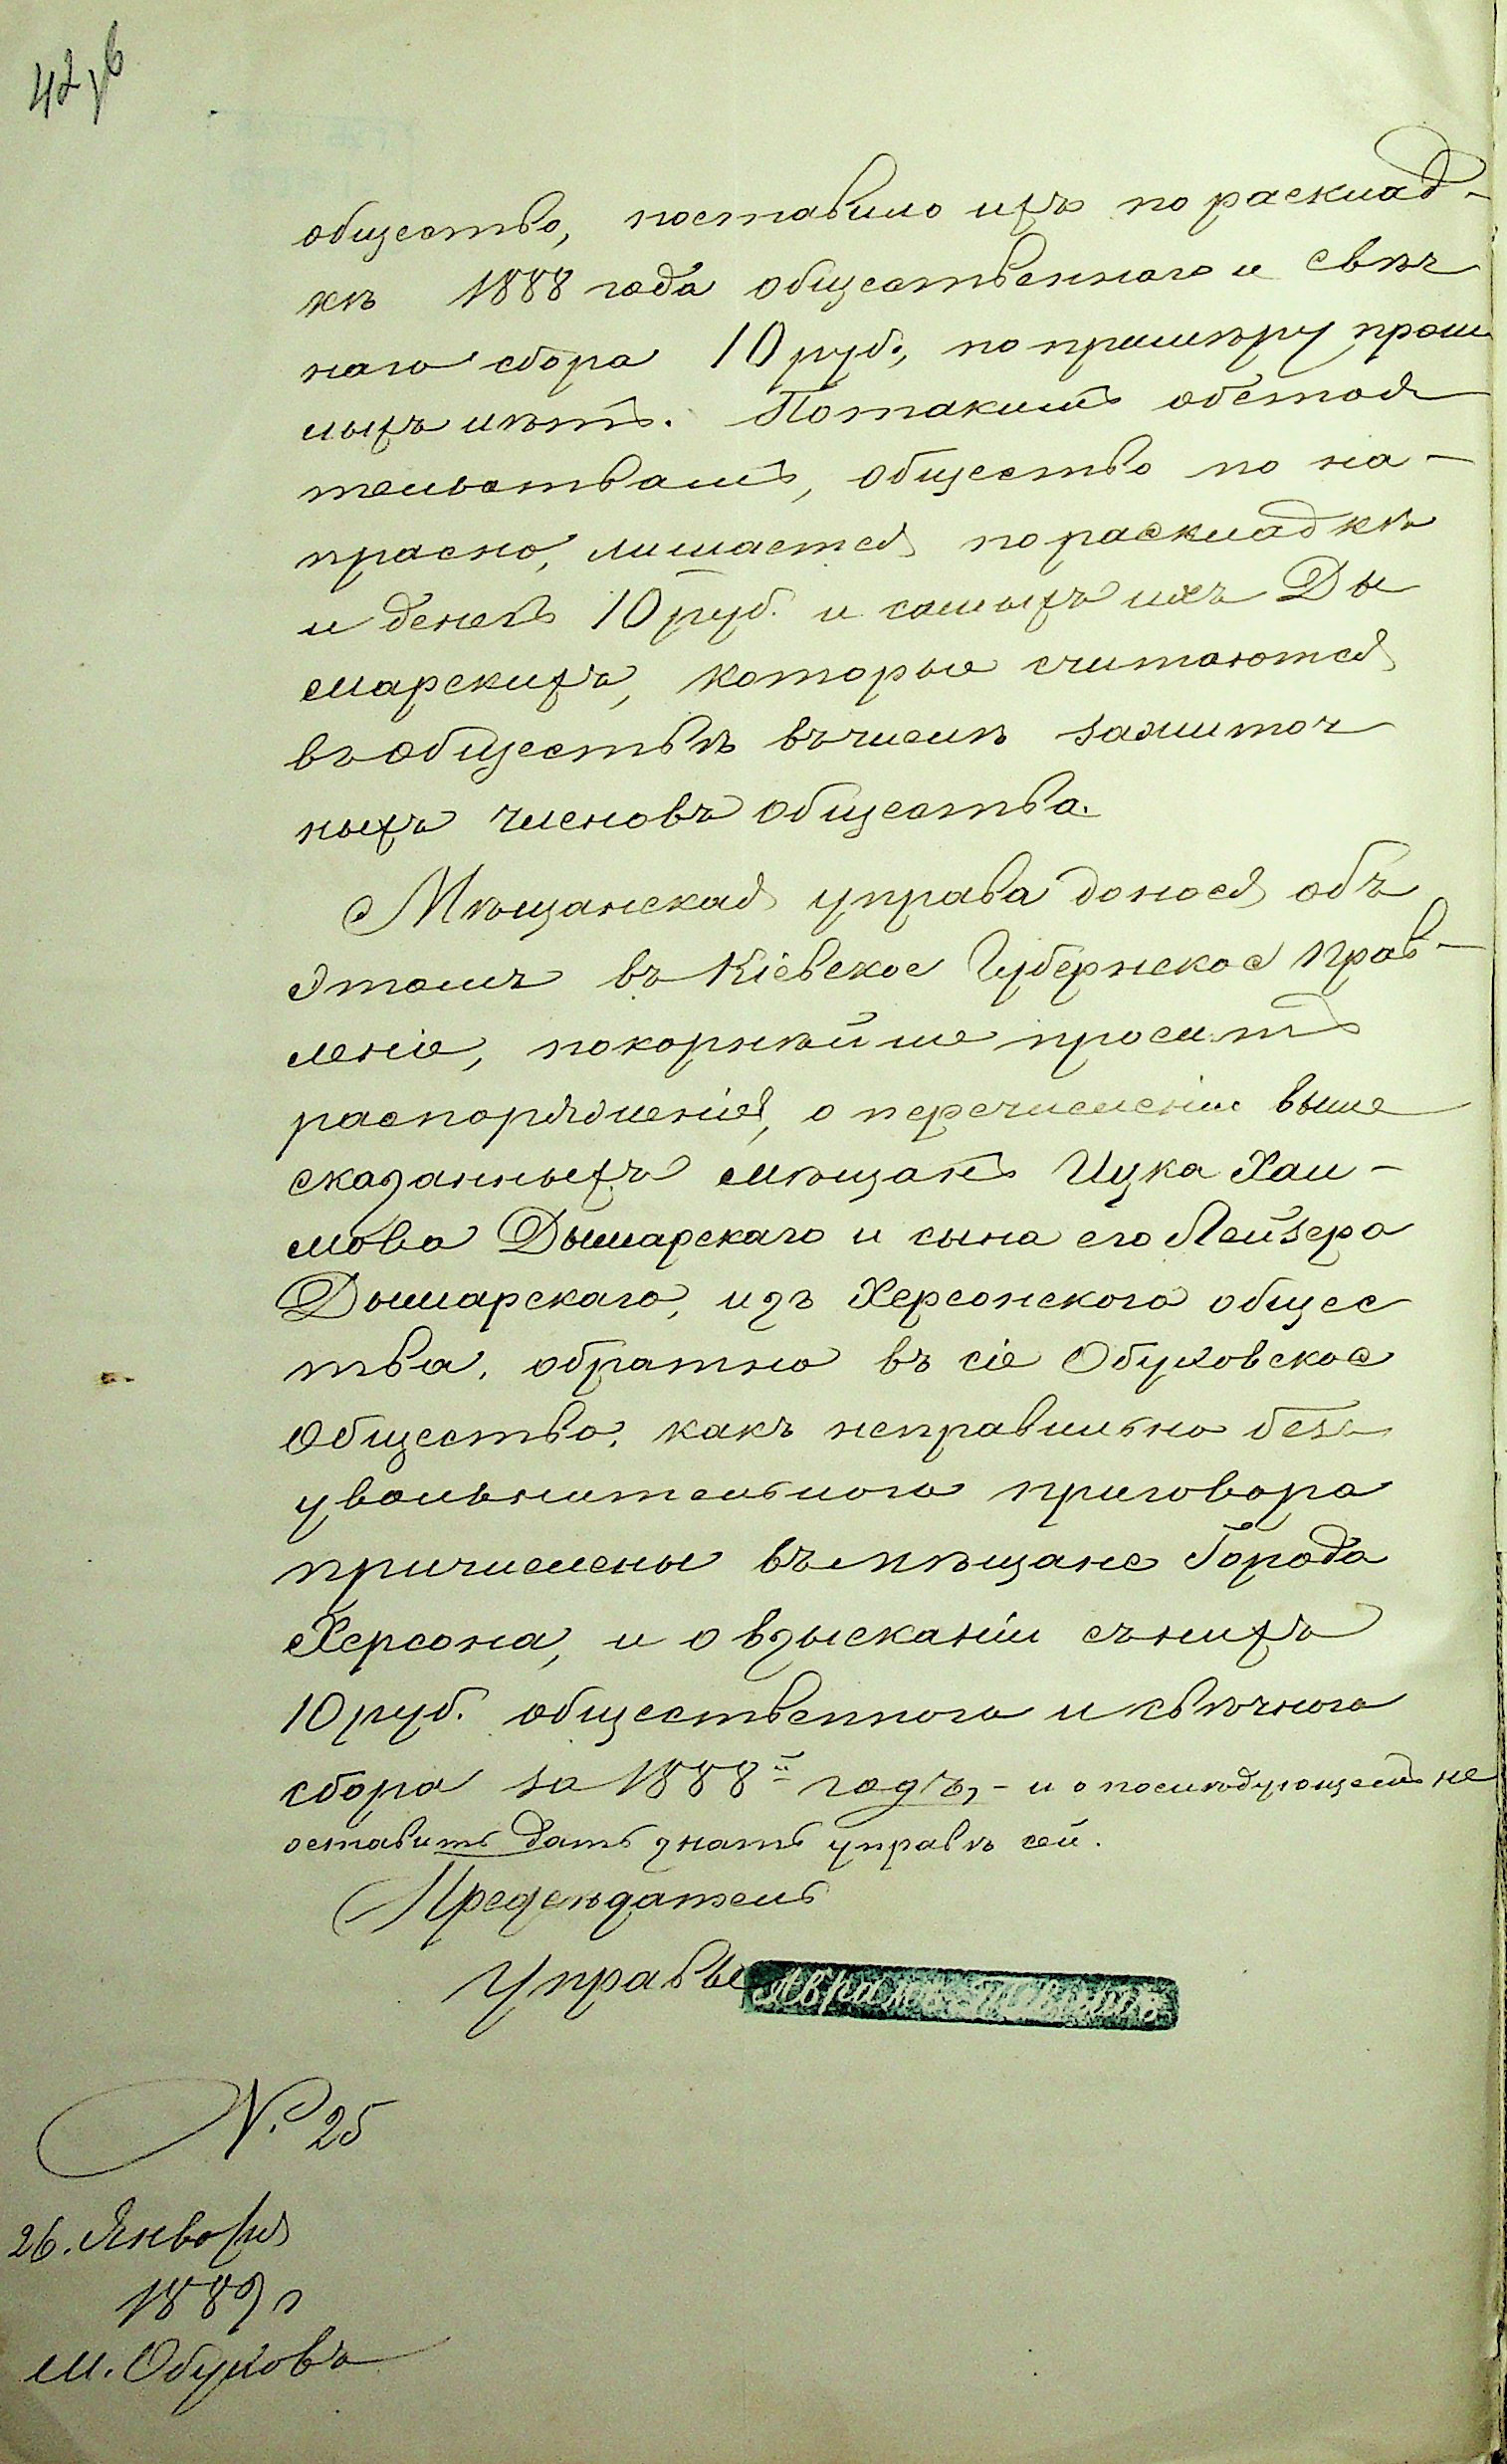 42 об
общество, поставило ихъ по расклад-
кѣ 1888 года общественнаго и свѣч
наго сбора 10 руб., по примѣру прош
лыхъ лѣтъ. Потакимъ обстоя
тельствамъ, общество по на-
прасно, лишается, по раскладкѣ
и денегъ 10 руб. и самыхъ ихъ Ды
марскихъ, которые считаются
въ обществѣ въ числѣ зажиточ
ныхъ членовъ общества.
Мѣщанская управа донося объ
этомъ въ Кіевское Губернское Прав-
леніе, покорнѣйше проситъ
распоряженія, о перечисленіи выше
сказанныхъ мѣщанъ Ицка Хаи-
мова Дымарскаго и сына его Лейзера
Дымарскаго, изъ Херсонского общес
тва, обратно въ сіе Обуховское
Общество, какъ неправильно безъ
увольнительного приговора
причислены въ мѣщане Города
Херсона, и о взысканіи съ нихъ
10 руб. общественного и свѣчнога
сбора за 1888й годъ, - и о послѣдующемъ не
оставить дать знать управѣ сей.
Предсѣдатель
Управы
№ 25
26. Января
1889 г
м. Обуховъ